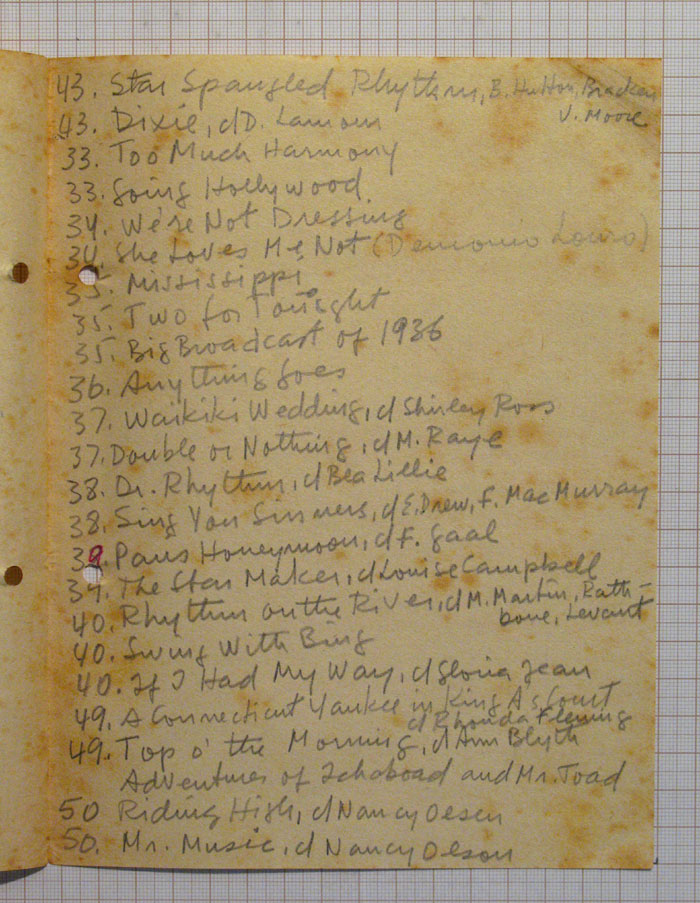 43. Star Spangled Rhythm, B. Hutton, Bracken
V. Moore
43. Dixie, c/D. Lamour
33. Too Much Harmony
33. Going Hollywood
34. We're Not Dressing
34. She Loves Me Not (Demonio Louro)
35. Mississippi
35. Two for Tonight
35. Big Broadcast of 1936
36. Anything Goes
37. Waikiki Wedding, c/Shirley Ross
37. Double or Nothing, c/M. Raye
38. Dr. Rhythm, c/Bea Lillie
38. Sing You Sinners, c/E. Drew, F. MacMurray
39. Paris Honeymoon, c/F. Gaal
39. The Star Maker, c/Louise Campbell
40. Rhythm on the River, c/M. Martin, Rath-
bone, Levant
40. Swing With Bing
40. If I Had My Way, c/Gloria Jean
49. A Connecticut Yankee in King A's Court
c/Rhonda Fleming
49. Top o' the Morning, c/Ann Blyth
Adventures of Ichaboad and Mr. Toad
50 Riding High, c/Nancy Olsen
50. Mr. Music, c/Nancy Olson